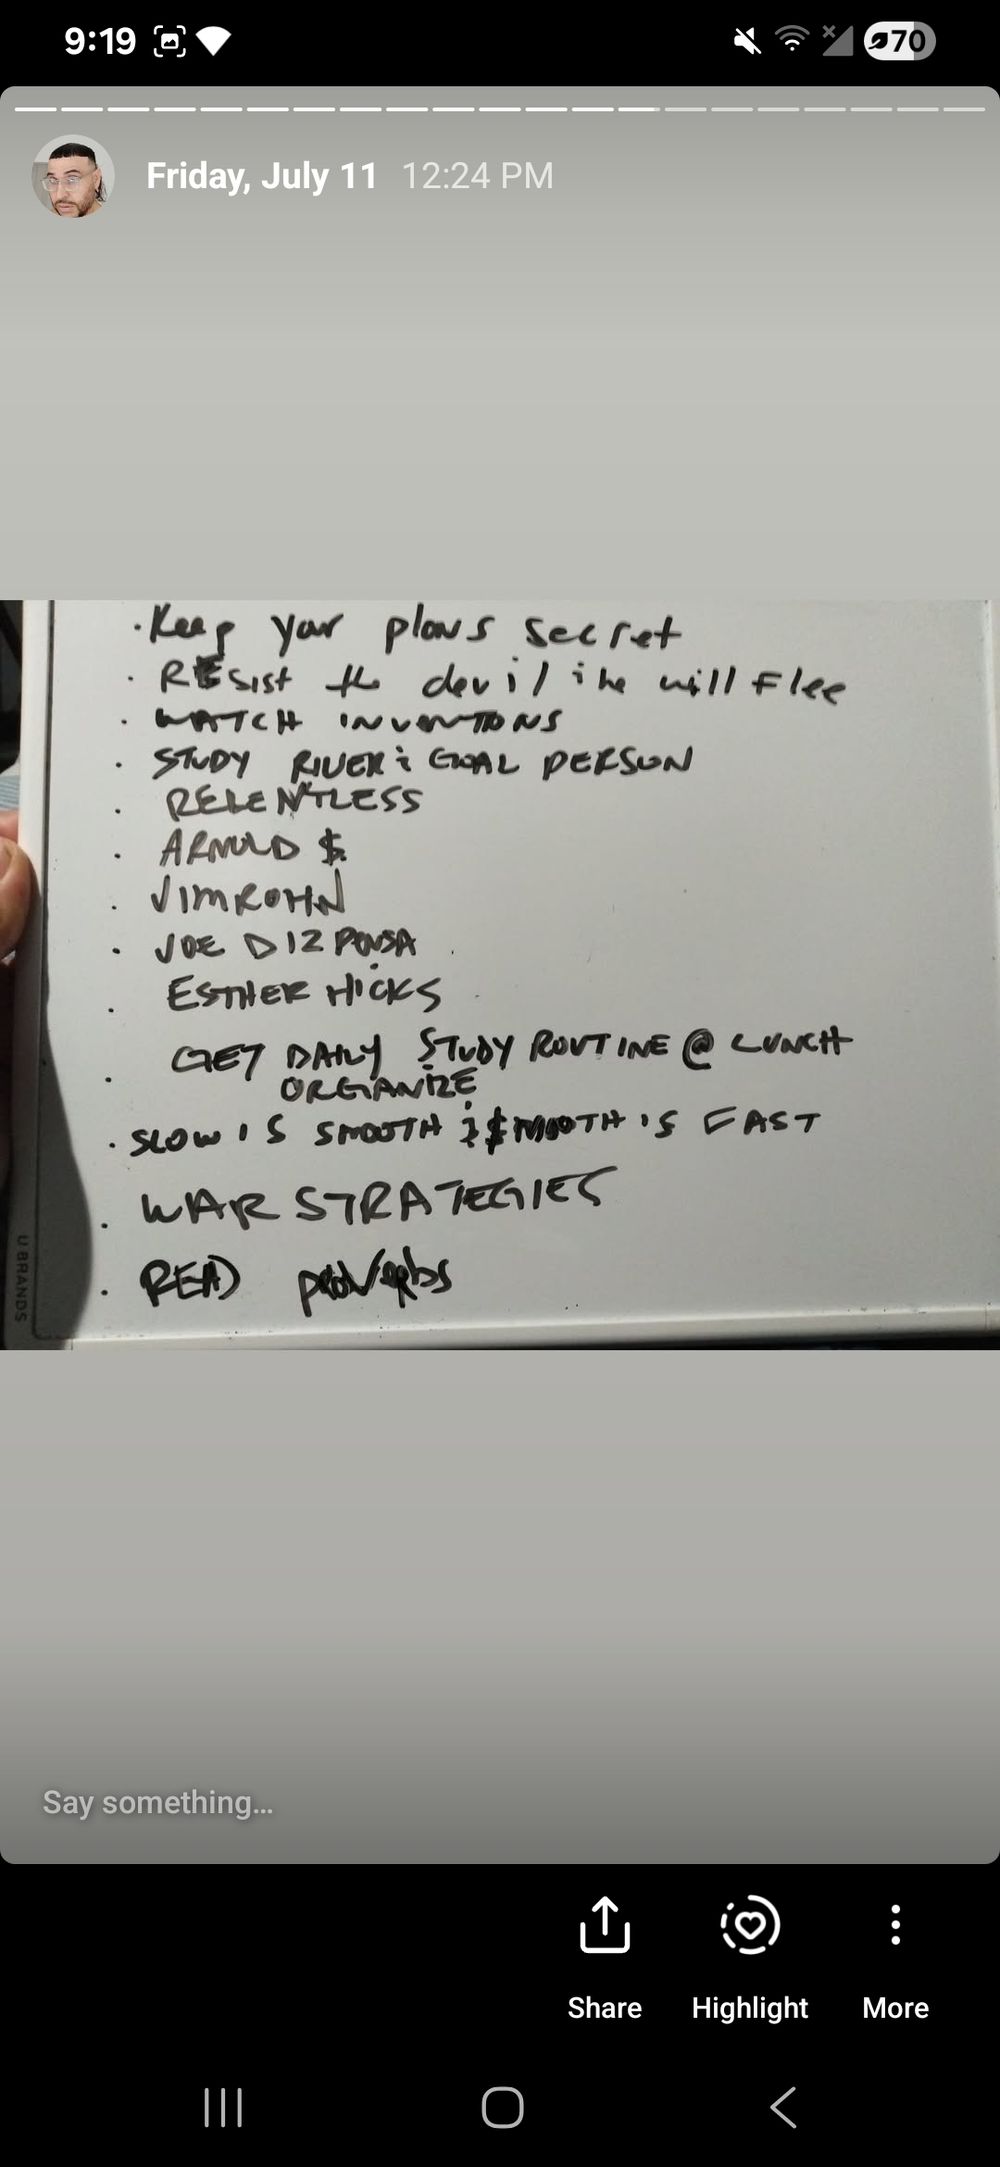 9:19
70
Friday, July 11 12:24 PM
· Keep your plans secret
· RESist the devil & he will Flee
· WATCH INVENTIONS
· STUDY RIVER & GOAL PERSON
· RELENTLESS
· ARNOLD $
· JIM ROHN
· JOE DIZPENSA
· ESTHER HICKS
· GET DAILY STUDY ROUTINE @ LUNCH
ORGANIZE
· SLOW IS SMOOTH & SMOOTH IS FAST
· WAR STRATEGIES
· READ proverbs
U BRANDS
Say something...
Share Highlight More